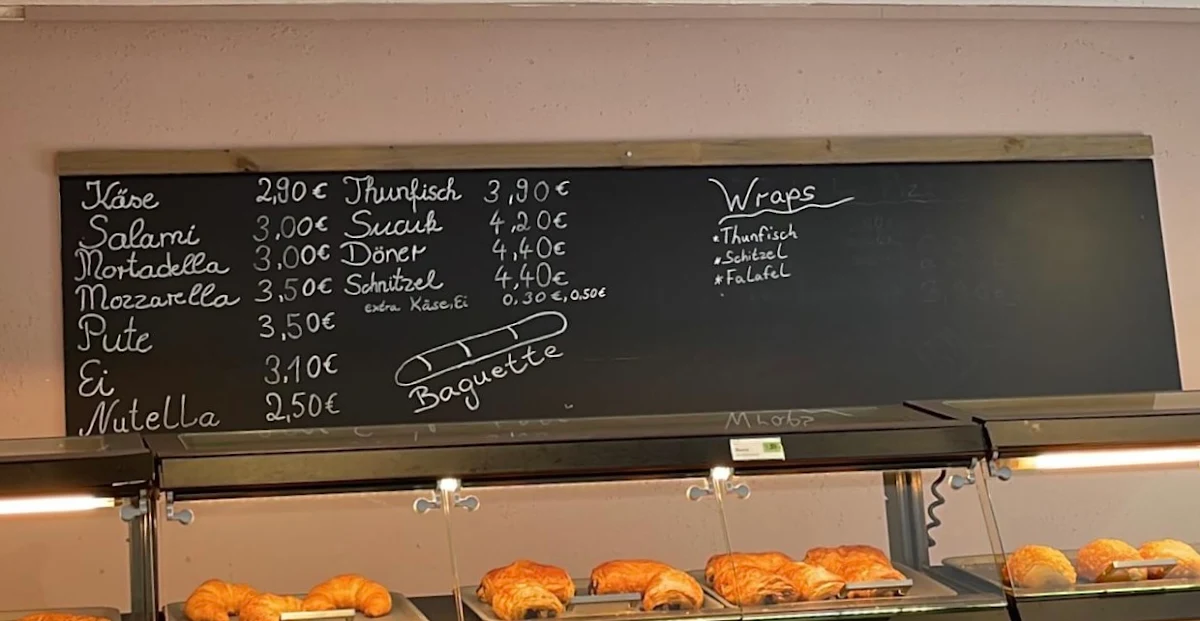 Käse 2,90€
Salami 3,00€
Mortadella 3,00€
Mozzarella 3,50€
Pute 3,50€
Ei 3,10€
Nutella 2,50€
Thunfisch 3,90€
Sucuk 4,20€
Döner 4,40€
Schnitzel 4,40€
extra Käse, Ei 0.30€, 0,50€
Baguette
Wraps
*Thunfisch
*Schitzel
*Falafel